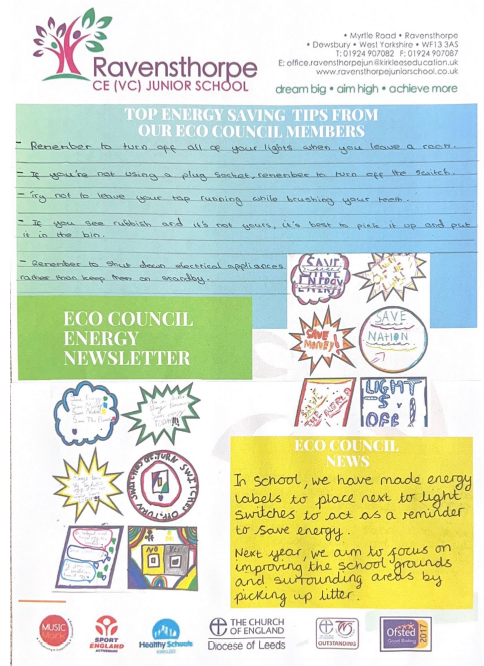 • Myrtle Road • Ravensthorpe
• Dewsbury • West Yorkshire • WF13 3AS
T: 01924 907082 F: 01924 907087
E: office.ravensthorpejun@kirkleeseducation.uk
www.ravensthorpejuniorschool.co.uk
Ravensthorpe
CE (VC) JUNIOR SCHOOL
dream big • aim high • achieve more
TOP ENERGY SAVING TIPS FROM
OUR ECO COUNCIL MEMBERS
- Remember to turn off all of your lights when you leave a room.
- If you're not using a plug socket, remember to turn off the switch.
- Try not to leave your tap running while brushing your teeth.
- If you see rubbish and it's not yours, it's best to pick it up and put
it in the bin.
- Remember to shut down electrical appliances
rather than keep them on standby.
SAVE
ENERGY
SAVE
MONEY!
SAVE
NATION
LIGHT
-S
OFF!
ECO COUNCIL
ENERGY
NEWSLETTER
ECO COUNCIL
NEWS
In school, we have made energy
labels to place next to light
switches to act as a reminder
to save energy.
Next year, we aim to focus on
improving the school grounds
and surrounding areas by
picking up litter.
MUSIC
Mark
SPORT
ENGLAND
ACTIVEMARK
Healthy Schools
THE CHURCH
OF ENGLAND
Diocese of Leeds
OUTSTANDING
Ofsted
Good Rating
2017